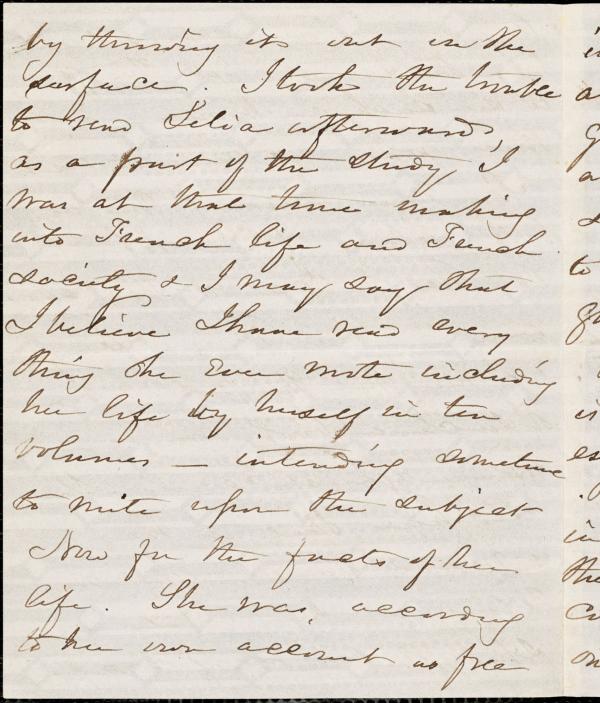 by throwing its out on the
surface. I took the trouble
to read Lelia afterwards,
as a part of the study I
was at that time making
into French life and French
society & I may say that
I believe I have read every
thing she ever wrote including
her life by herself in ten
volumes — intending sometime
to write upon the subject
Now for the facts of her
life. She was, according
to her own account as free